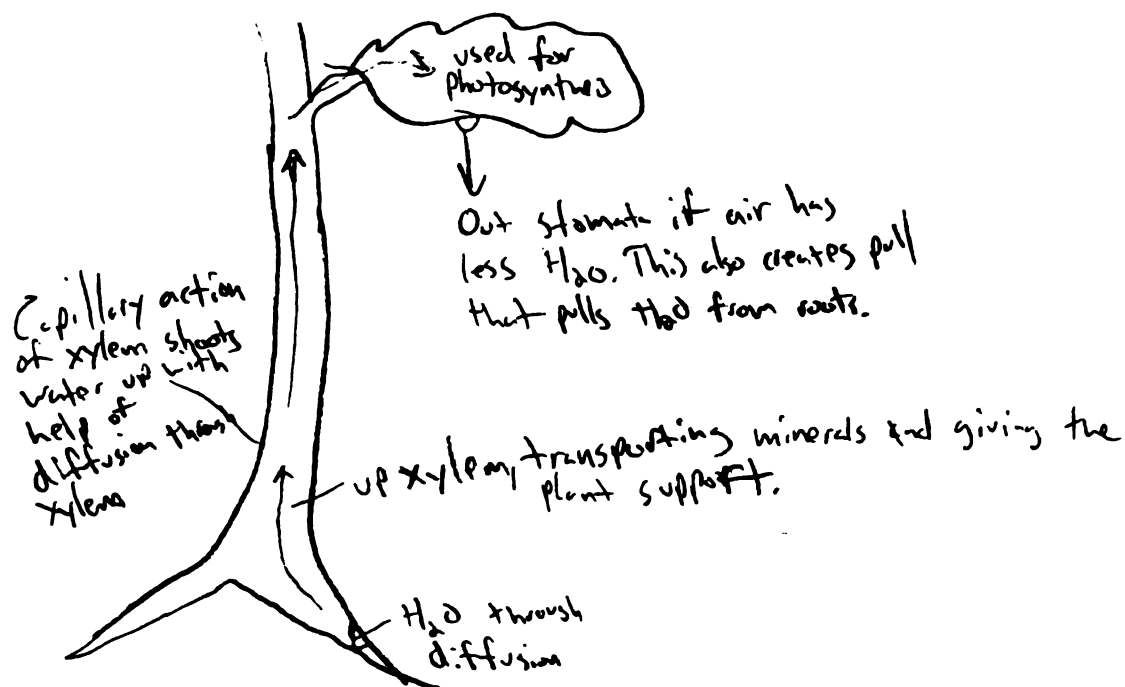 used for
photosynthesis
Out stomata if air has
less H₂O. This also creates pull
that pulls H₂O from roots.
Capillary action
of xylem shoots
water up with
help of
diffusion through
xylem
up xylem, transporting minerals and giving the
plant support.
H₂O through
diffusion